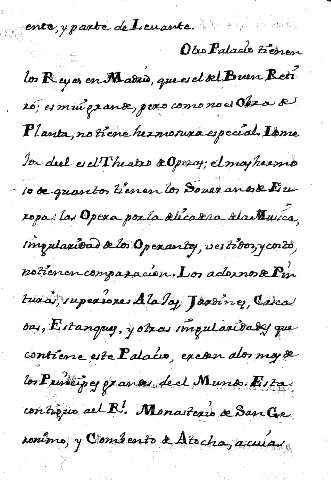 ente, y parte de Levante.
Otro Palacio tienen
los Reyes en Madrid, que es el del Buen Reti
ro; es mui grande, pero como no es Obra de
Planta, no tiene hermosura especial. Lo me
jor de el es el Theatro de Operas; el mas hermo
so de quantos tienen los Soveranos de Eu
ropa: las Opera por la delicadeza de la Musica,
singularidad de los Operantes, vestidos, y costo,
no tienen comparacion. Los adornos de Pin
turas, superiores Alajas, Jardines, Casca
das, Estanques, y otras singularidades que
contiene este Palacio, exceden a los mas de
los Principes grandes de el Mundo. Esta
contiguo a el Rl. Monasterio de San Ge
ronimo, y Combento de Atocha, a cuias